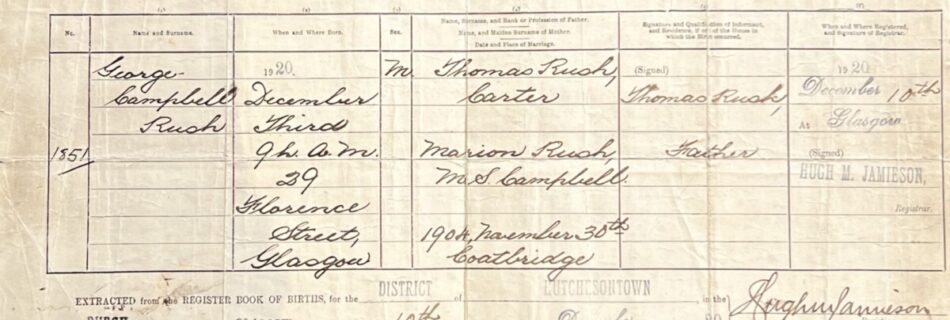 No.
Name and Surname.
When and Where Born.
Sex.
Name, Surname, and Rank or Profession of Father.
Name, and Maiden Surname of Mother.
Date and Place of Marriage.
Signature and Qualification of Informant,
and Residence, if out of the House in
which the Birth occurred.
When and Where Registered,
and Signature of Registrar.
1851
George
Campbell
Rush
1920.
December
Third
9h. A.M.
29
Florence
Street,
Glasgow
M.
Thomas Rush,
Carter
Marion Rush,
M.S. Campbell.
1904, November 30th
Coatbridge
(Signed)
Thomas Rush,
Father
1920
December 10th
At Glasgow
(Signed)
HUGH M. JAMIESON,
Registrar.
EXTRACTED from the REGISTER BOOK OF BIRTHS, for the DISTRICT of HUTCHESONTOWN in the
Hugh M Jamieson
10th